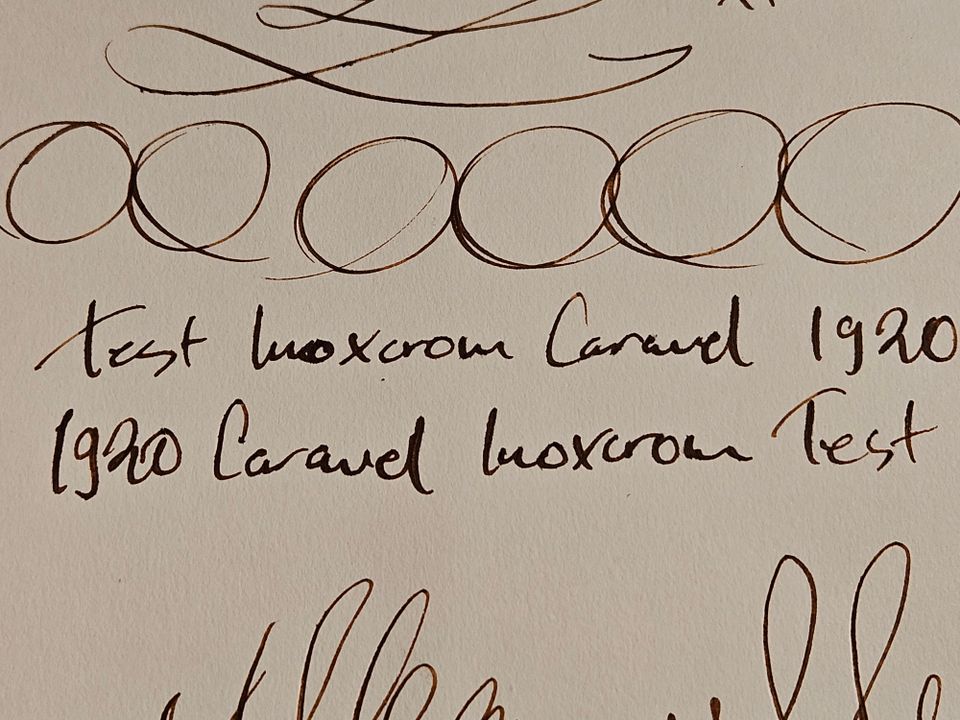 Test Inoxcrom Caravel 1920
1920 Caravel Inoxcrom Test